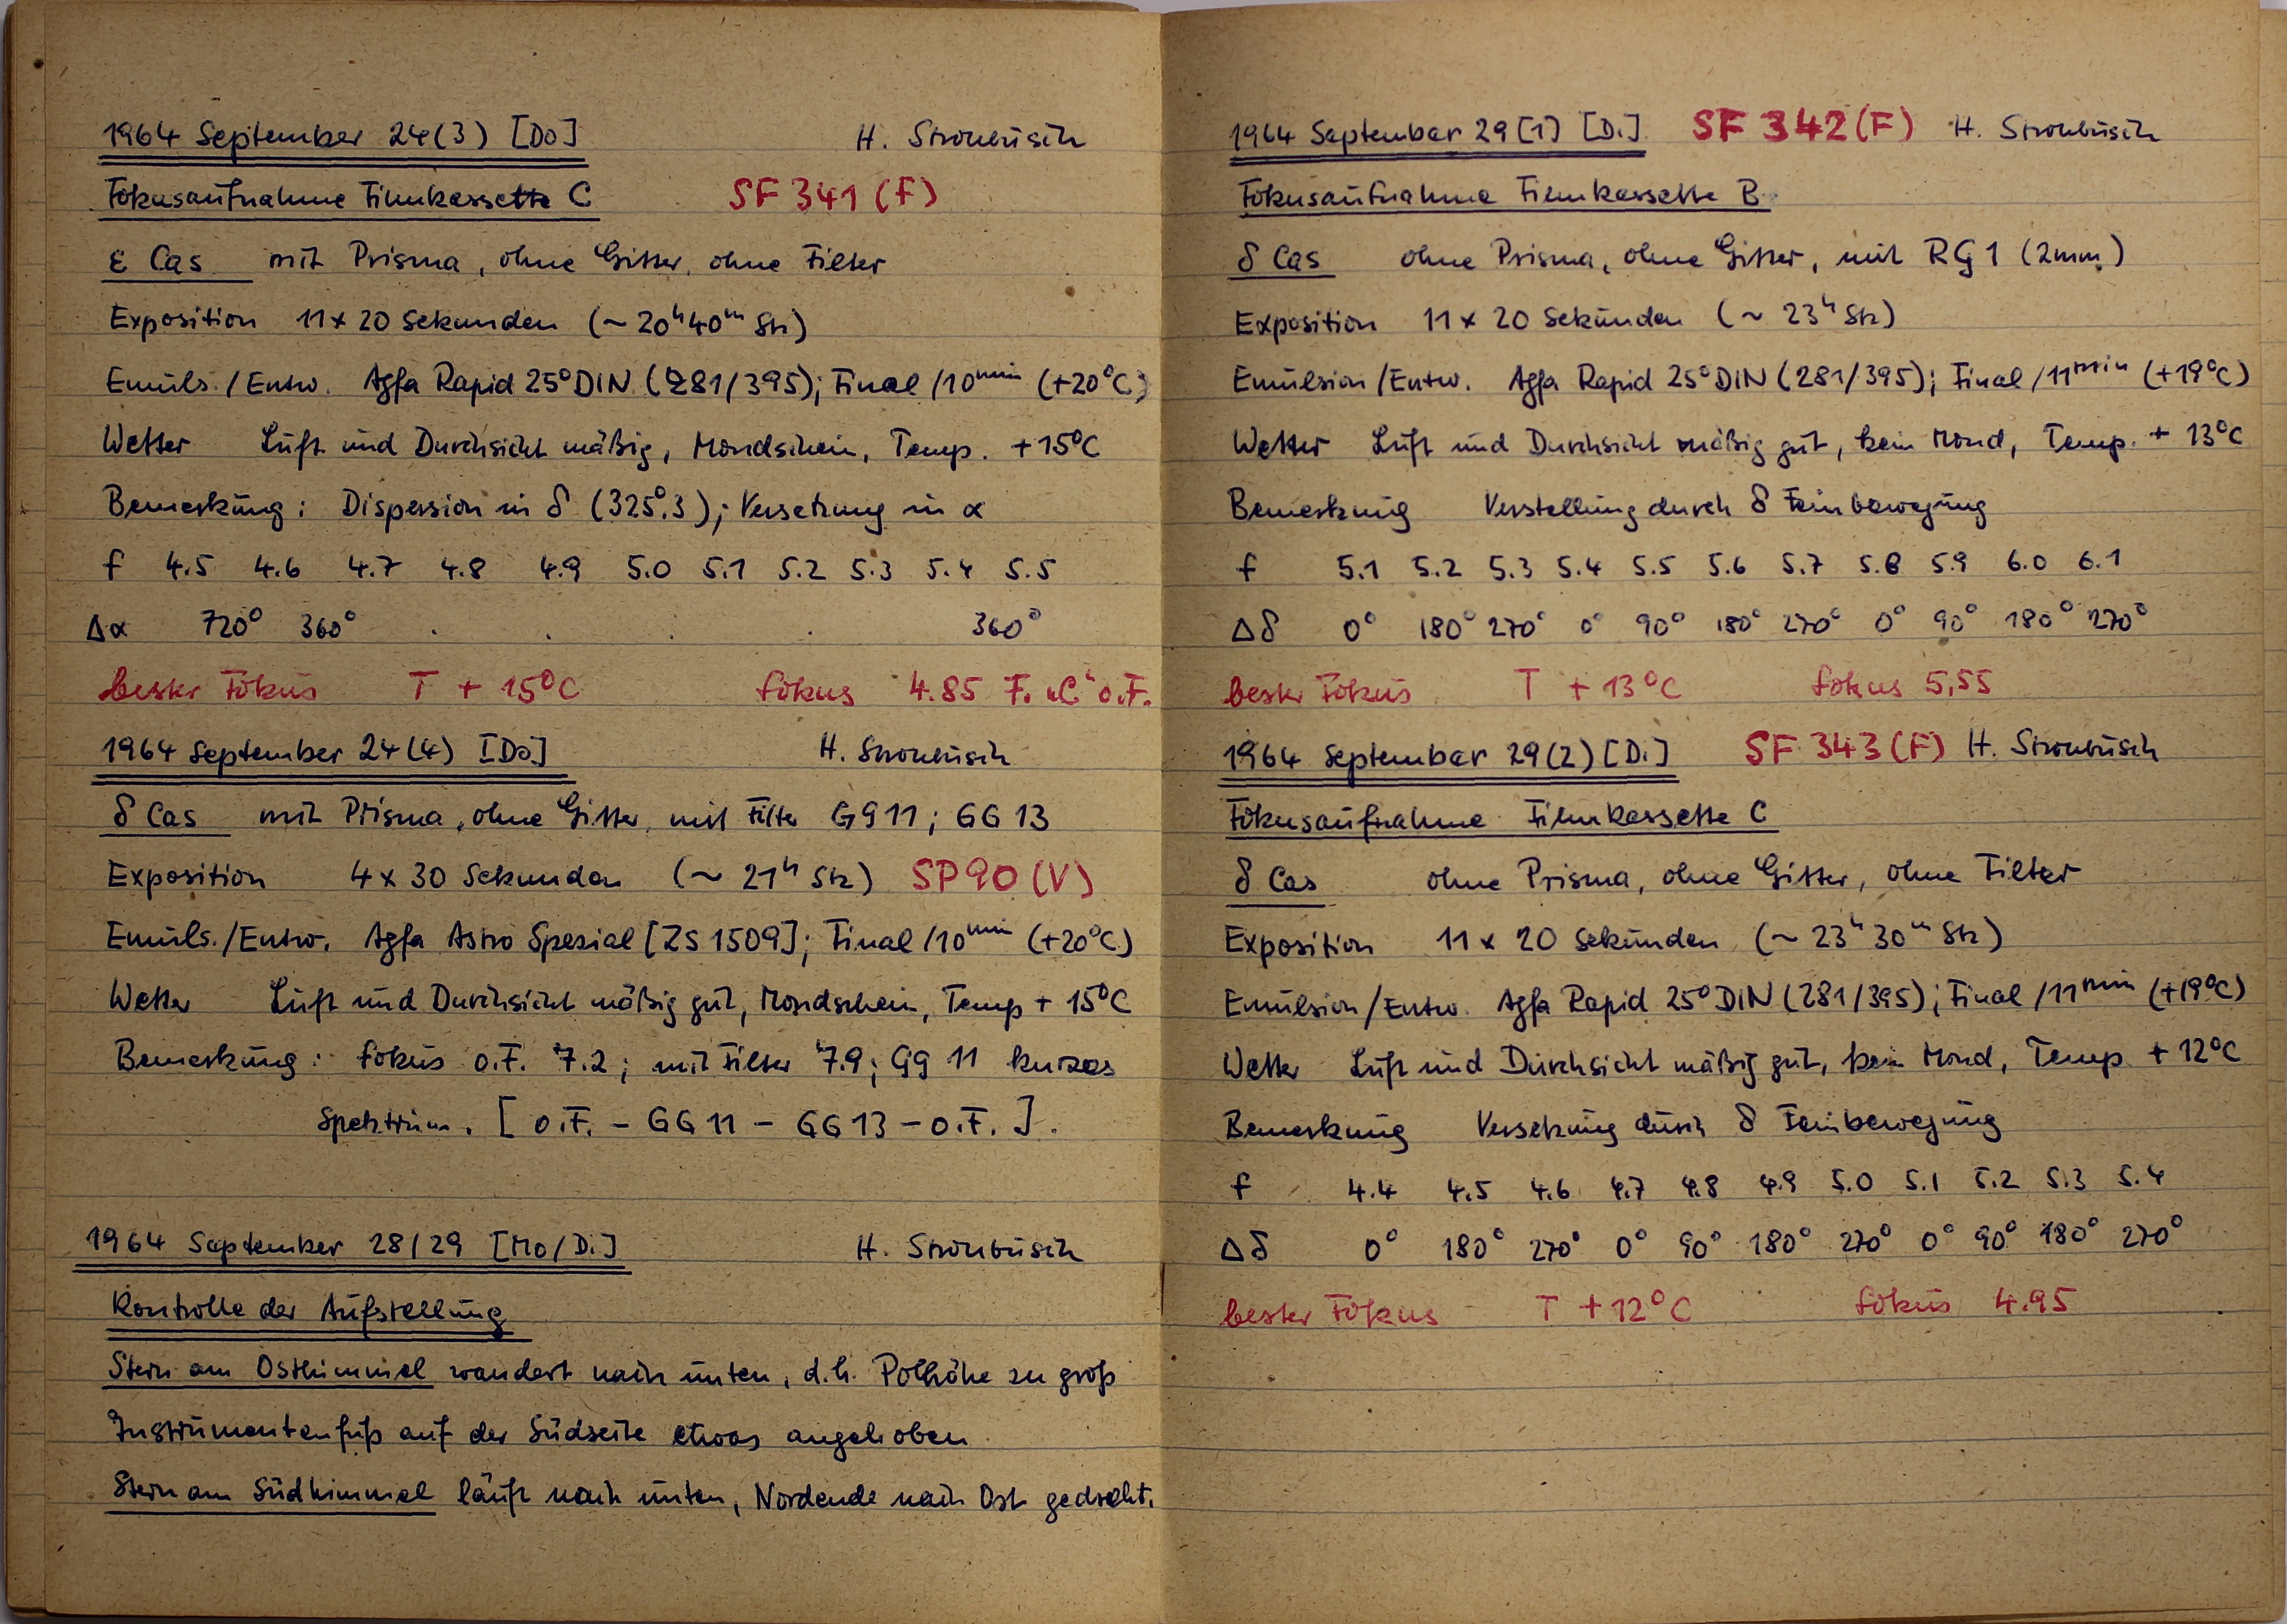 1964 September 24(3) [Do] H. Strohbusch
Fokusaufnahme Filmkassette C SF 341 (F)
ε Cas mit Prisma, ohne Gitter, ohne Filter
Exposition 11x20 Sekunden (~20ʰ40ᵐ Stz)
Emuls./Entw. Agfa Rapid 25°DIN (281/395); Final/10ᵐⁱⁿ (+20°C)
Wetter Luft und Durchsicht mäßig, Mondschein, Temp. +15°C
Bemerkung: Dispersion in δ (325°.3); Versetzung in α
f 4.5 4.6 4.7 4.8 4.9 5.0 5.1 5.2 5.3 5.4 5.5
Δα 720° 360° . . . . 360°
bester Fokus T + 15°C Fokus 4.85 F. "C" o.F.
1964 September 24(4) [Do] H. Strohbusch
δ Cas mit Prisma, ohne Gitter, mit Filter GG11; GG13
Exposition 4x30 Sekunden (~21ʰ Stz) SP90 (V)
Emuls./Entw. Agfa Astro Spezial [ZS 1509]; Final/10ᵐⁱⁿ (+20°C)
Wetter Luft und Durchsicht mäßig gut, Mondschein, Temp + 15°C
Bemerkung: Fokus o.F. 7.2; mit Filter 7.9; GG 11 kurzes
Spektrum. [o.F. – GG11 – GG13 – o.F.].
1964 September 28/29 [Mo/Di] H. Strohbusch
Kontrolle der Aufstellung
Stern am Osthimmel wandert nach unten, d.h. Polhöhe zu groß
Instrumentenfuß auf der Südseite etwas angehoben
Stern am Südhimmel läuft nach unten, Nordende nach Ost gedreht.
1964 September 29[1] [Di] SF 342(F) H. Strohbusch
Fokusaufnahme Filmkassette B
δ Cas ohne Prisma, ohne Gitter, mit RG1 (2mm)
Exposition 11x20 Sekunden (~23ʰ Stz)
Emulsion/Entw. Agfa Rapid 25°DIN (281/395); Final/11ᵐⁱⁿ (+19°C)
Wetter Luft und Durchsicht mäßig gut, kein Mond, Temp. + 13°C
Bemerkung Verstellung durch δ Feinbewegung
f 5.1 5.2 5.3 5.4 5.5 5.6 5.7 5.8 5.9 6.0 6.1
Δδ 0° 180° 270° 0° 90° 180° 270° 0° 90° 180° 270°
bester Fokus T + 13°C Fokus 5,55
1964 September 29(2) [Di] SF 343 (F) H. Strohbusch
Fokusaufnahme Filmkassette C
δ Cas ohne Prisma, ohne Gitter, ohne Filter
Exposition 11x20 Sekunden (~23ʰ30ᵐ Stz)
Emulsion/Entw. Agfa Rapid 25°DIN (281/395); Final/11ᵐⁱⁿ (+19°C)
Wetter Luft und Durchsicht mäßig gut, kein Mond, Temp + 12°C
Bemerkung Versetzung durch δ Feinbewegung
f 4.4 4.5 4.6 4.7 4.8 4.9 5.0 5.1 5.2 5.3 5.4
Δδ 0° 180° 270° 0° 90° 180° 270° 0° 90° 180° 270°
bester Fokus T + 12°C Fokus 4.95